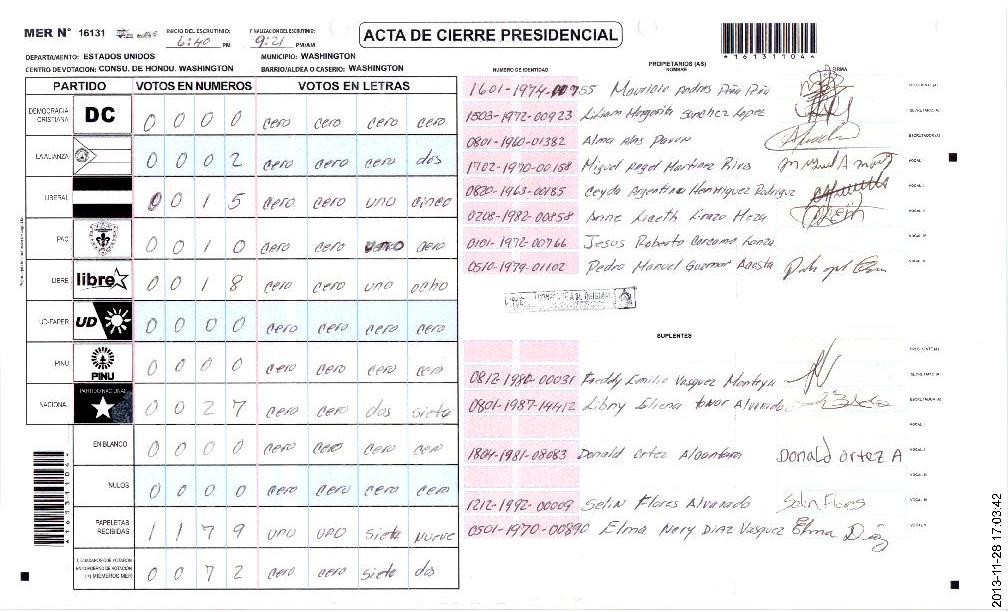 MER N° 16131
INICIO DEL ESCRUTINIO: 6:40 PM
FINALIZACION DEL ESCRUTINIO: 9:21 PM/AM
ACTA DE CIERRE PRESIDENCIAL
*16131104*
DEPARTAMENTO: ESTADOS UNIDOS
MUNICIPIO: WASHINGTON
CENTRO DE VOTACION: CONSU. DE HONDU. WASHINGTON
BARRIO/ALDEA O CASERIO: WASHINGTON
PARTIDO VOTOS EN NUMEROS VOTOS EN LETRAS
DEMOCRACIA CRISTIANA DC 0 0 0 0 cero cero cero cero
LA ALIANZA 0 0 0 2 cero cero cero dos
LIBERAL 0 0 1 5 cero cero uno cinco
PAC 0 0 1 0 cero cero uno cero
LIBRE libre 0 0 1 8 cero cero uno ocho
UD-FAPER UD 0 0 0 0 cero cero cero cero
PINU PINU 0 0 0 0 cero cero cero cero
NACIONAL PARTIDO NACIONAL 0 0 2 7 cero cero dos siete
EN BLANCO 0 0 0 0 cero cero cero cero
NULOS 0 0 0 0 cero cero cero cero
PAPELETAS RECIBIDAS 1 1 7 9 uno uno siete nueve
CIUDADANOS QUE VOTARON EN CUADERNO DE VOTACION (+) MIEMBROS MER 0 0 7 2 cero cero siete dos
NUMERO DE IDENTIDAD
PROPIETARIOS (AS)
NOMBRE
FIRMA
1601-1974-00755 Mauricio Andres PRESIDENTE (A)
1503-1972-00923 Liliam Margarita Sanchez Lopez SECRETARIO (A)
0801-1960-01382 Alma Alas Pavon ESCRUTADOR (A)
1702-1970-00168 Miguel Angel Martinez Rivas VOCAL I
0820-1963-00185 Ceyda Argentina Henriquez Rodrigz VOCAL II
0208-1982-00858 Anne Liceth Lanza Meza VOCAL III
0101-1972-00766 Jesus Roberto Carcamo Lanza VOCAL IV
0510-1979-01102 Pedro Manuel Guzman Acosta VOCAL V
SUPLENTES
PRESIDENTE (A)
0812-1980-00031 Freddy Emilio Vasquez Montoya SECRETARIO (A)
0801-1987-14412 Libny Eliena Tovar Alvarado ESCRUTADOR (A)
VOCAL I
1804-1981-03083 Donald Ortez Alcantara Donald Ortez A VOCAL II
VOCAL III
1212-1992-00009 Selin Flores Alvarado Selin Flores VOCAL IV
0501-1970-00890 Elma Nery Diaz Vasquez Elma Díaz VOCAL V
2013-11-28 17:03:42
*16131104*